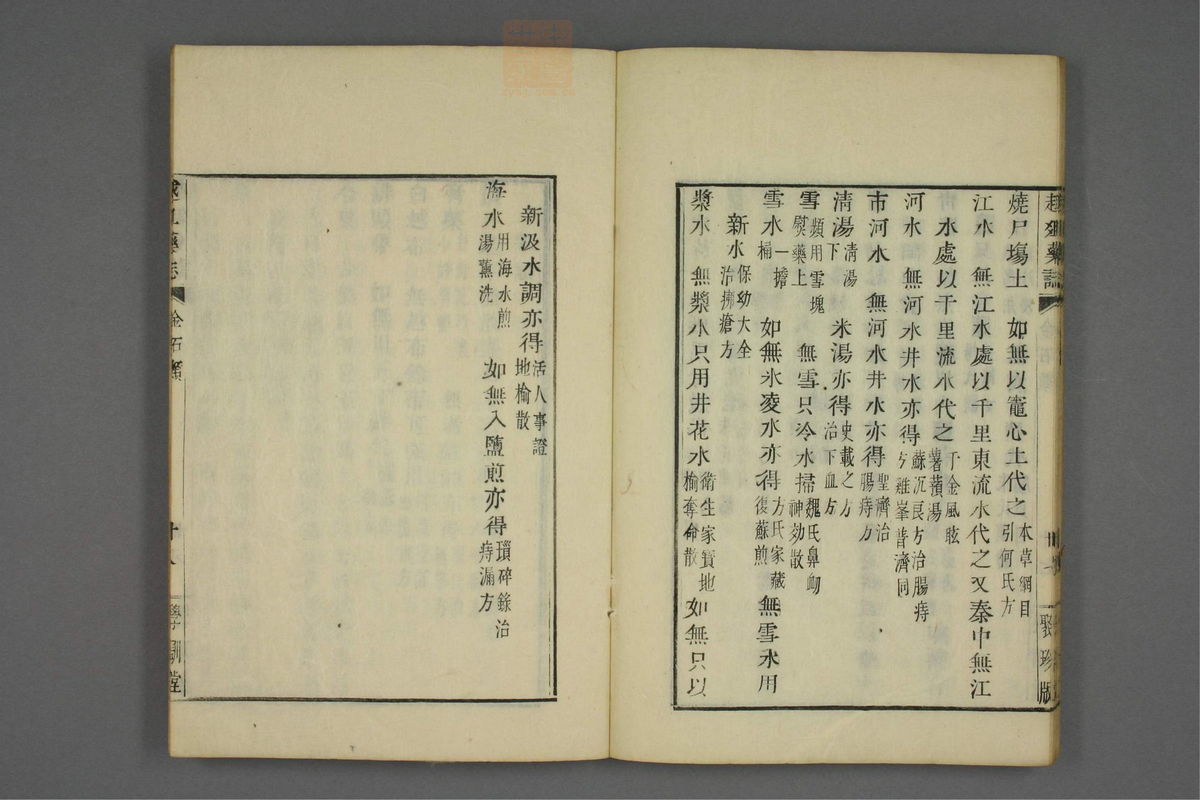 燒尸塲土　如無以竈心土代之本草綱目引何氏方
江水　無江水處以千里東流水代之又秦中無江
水處以千里流水代之千金風眩薯蕷湯
河水　無河水井水亦得蘇沉良方治腸痔方雞峯普濟同
市河水　無河水井水亦得聖濟治腸痔方
清湯清湯下　米湯亦得史載之方治下血方
雪類用雪塊熨藥上　無雪只冷水掃魏氏鼻衂神効散
雪水一擔桶　如無氷凌水亦得方氏家藏復蘇煎　無雪水用
新水保幼大全治擁瘡方
漿水　無漿水只用井花水衛生家寶地榆奪命散　如無只以
新汲水調亦得活人事證地榆散
海水用海水煎湯薰洗　如無入鹽煎亦得瑣碎錄治痔漏方
金石類
十八
學訓堂
聚珍版